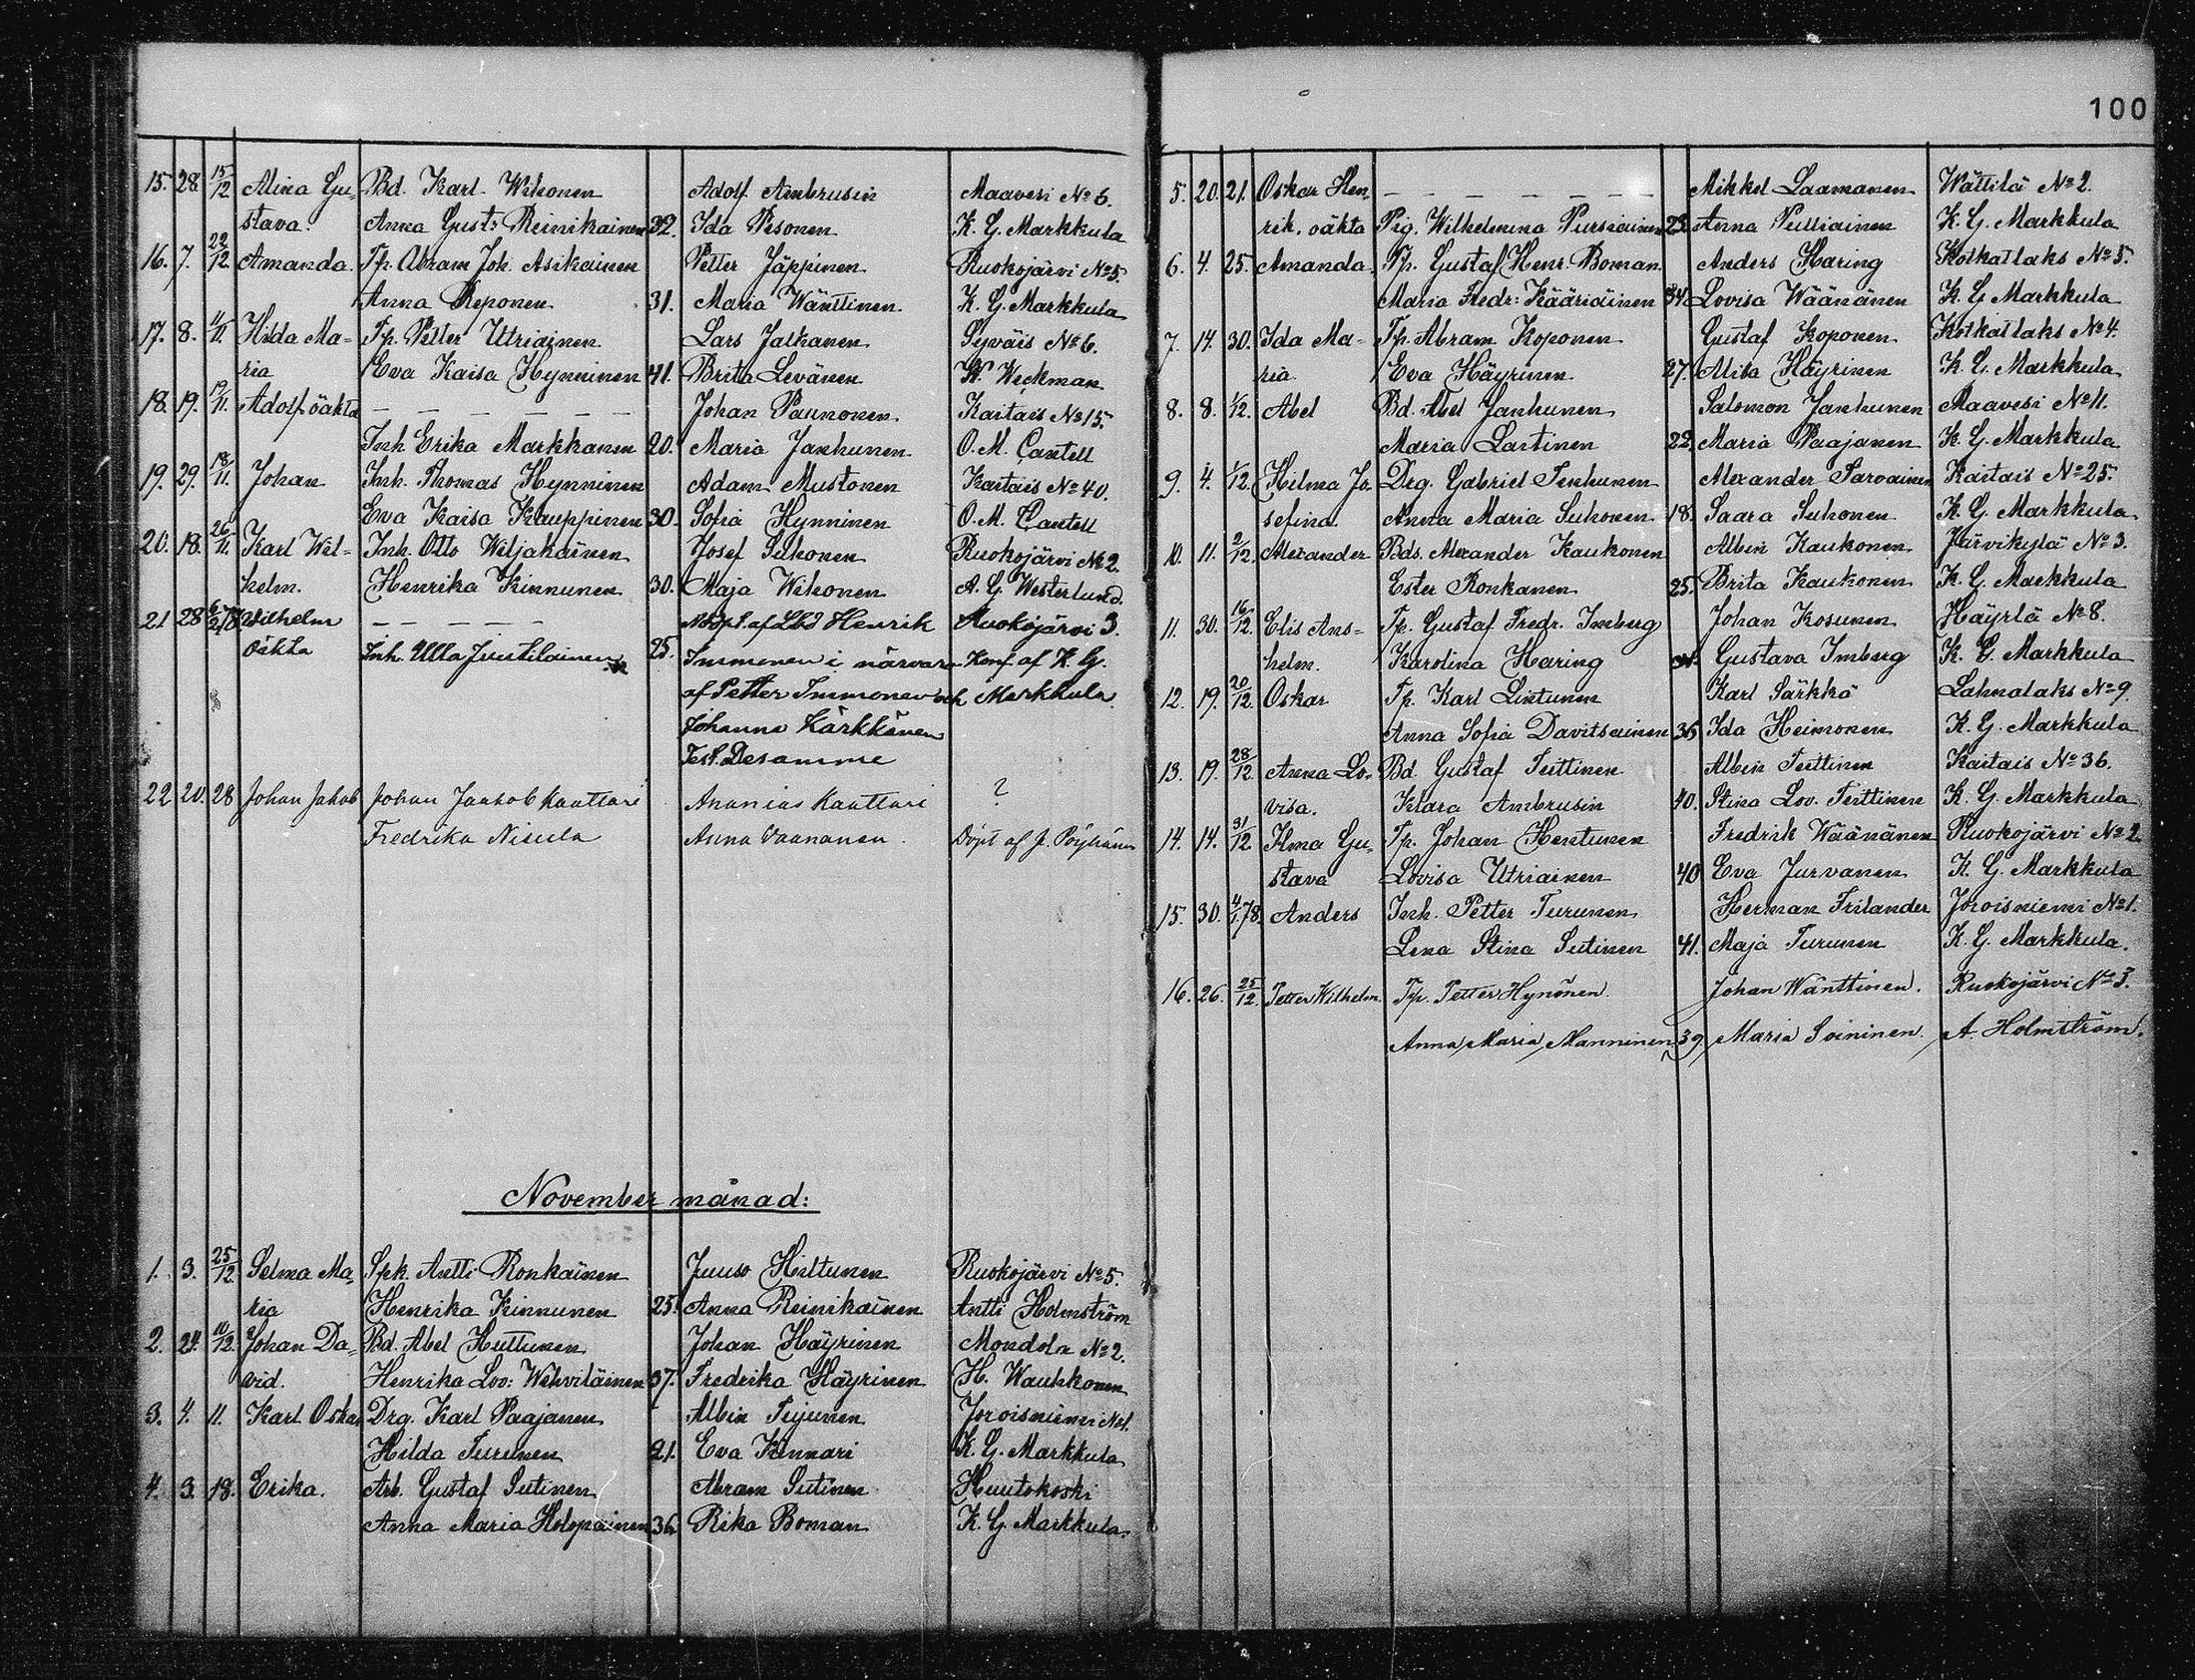 15. 28. 15/12 Alina Gu- Bd. Karl Wihonen Adolf Ambrusin Maavesi No 6.
stava. Anna Gust: Reinikainen 32. Ida Pesonen K. G. Markkula
16. 7. 22/12 Amanda. Tp. Abram Joh. Asikainen Petter Jäppinen Ruokojärvi No 5.
Anna Reponen 31. Maria Wänttinen K. G. Markkula
17. 8. 11/11. Hilda Ma- Tp. Petter Utriainen Lars Jalkanen Syväis No 6.
ria Eva Kaisa Hynninen 41. Brita Levänen W. Weckman
18. 19. 19/11. Adolf öäkta — — — — — — Johan Paunonen Kaitais No 15.
Inh Erika Markkanen 20. Maria Janhunen O. M. Cantell
19. 29. 18/11. Johan Inh. Thomas Hynninen Adam Mustonen Kaitais No 40.
Eva Kaisa Kauppinen 30. Sofia Hynninen O. M. Cantell
20. 18. 26/11. Karl Wil- Inh. Otto Wiljakainen Josef Suhonen Ruokojärvi No 2.
helm. Henrika Kinnunen 30. Maja Wihonen A. G. Westerlund.
21 28 Wilhelm — — — — — Nödpt. af Lbd Henrik Ruokojärvi 3.
öäkta Inh. Ulla Juutilainen 25. Immonen i närvaro Konf. af K. G.
af Petter Immonen och Markkula
Johanna Kärkkänen
Test. Desamme
22 20. 28 Johan Jakob Johan Jaakob Kauttari Ananias Kauttari ?
Fredrika Nisula Anna Vaananen. Döpt af J. Pöyhänen
November månad:
1. 3. 25/12 Selma Ma- Spk. Antti Ronkainen Juuso Hiltunen Ruokojärvi No 5.
ria Henrika Kinnunen 25. Anna Reinikainen Antti Holmström
2. 24. 10/12. Johan Da- Bd. Abel Huttunen Johan Häyrinen Mondola No 2.
vid. Henrika Lov: Wehviläinen 37. Fredrika Häyrinen H. Wauhkonen
3. 4. 11. Karl Oskar Drg. Karl Paajanen Albin Teijunen Joroisniemi No 1.
Hilda Turunen 21. Eva Kinnari K. G. Markkula
4. 3. 18. Erika. Arb. Gustaf Sutinen Abram Sutinen Huutokoski
Anna Maria Holopainen 36 Rika Boman K. G. Markkula.
100
5. 20. 21. Oskar Hen- — — — — — — Mikkel Laamanen Wättilä No 2.
rik, oäkta Pig. Wilhelmina Pursiainen 23. Anna Pulliainen K. G. Markkula
6. 4. 25. Amanda Tp. Gustaf Henr. Boman. Anders Haring Kotkatlaks No 5.
Maria Fredr: Kääriäinen 34. Lovisa Wäänänen K. G. Markkula
7. 14. 30. Ida Ma- Tp. Abram Koponen Gustaf Koponen Kotkatlaks No 4.
ria. Eva Häyrinen 27. Alisa Häyrinen K. G. Markkula
8. 8. 1/12. Abel Bd. Abel Janhunen Salomon Janhunen Maavesi No 11.
Maria Lastinen 22. Maria Paajanen K. G. Markkula
9. 4. 1/12. Hilma Jo- Drg. Gabriel Tenhunen Alexander Tarvainen Kaitais No 25.
sefina. Anna Maria Suhonen 18. Saara Suhonen K. G. Markkula
10. 11. 2/12. Alexander Bds. Alexander Kaukonen Albin Kaukonen Järvikylä No 3.
Ester Ronkanen 25. Brita Kaukonen K. G. Markkula
11. 30. 16/12. Elis Ans- Tp. Gustaf Fredr. Imberg Johan Kosunen Häyrlä No 8.
helm. Karolina Haring Gustava Imberg K. G. Markkula
12. 19. 20/12 Oskar Tp. Karl Lintunen Karl Särkkä Lahnalaks No 9.
Anna Sofia Davitsainen 36 Ida Heimonen K. G. Markkula
13. 19. 28/12 Anna Lo- Bd. Gustaf Teittinen Albin Teittinen Kaitais No 36.
visa. Klara Ambrusin 40. Stina Lov. Teittinen K. G. Markkula
14. 14. 31/12 Ilma Gu- Tp. Johan Hentunen Fredrik Wäänänen Ruokojärvi No 2
stava Lovisa Utriainen 40 Eva Jurvanen K. G. Markkula
15. 30. 4/1 78. Anders Inh. Petter Turunen Herman Frilander Joroisniemi No 1.
Lena Stina Sutinen 41. Maja Turunen K. G. Markkula.
16. 26. 25/12. Petter Wilhelm. Tp. Petter Hynönen. Johan Wänttinen. Ruokojärvi No 3.
Anna Maria Manninen 39. Maria Soininen. A. Holmström.